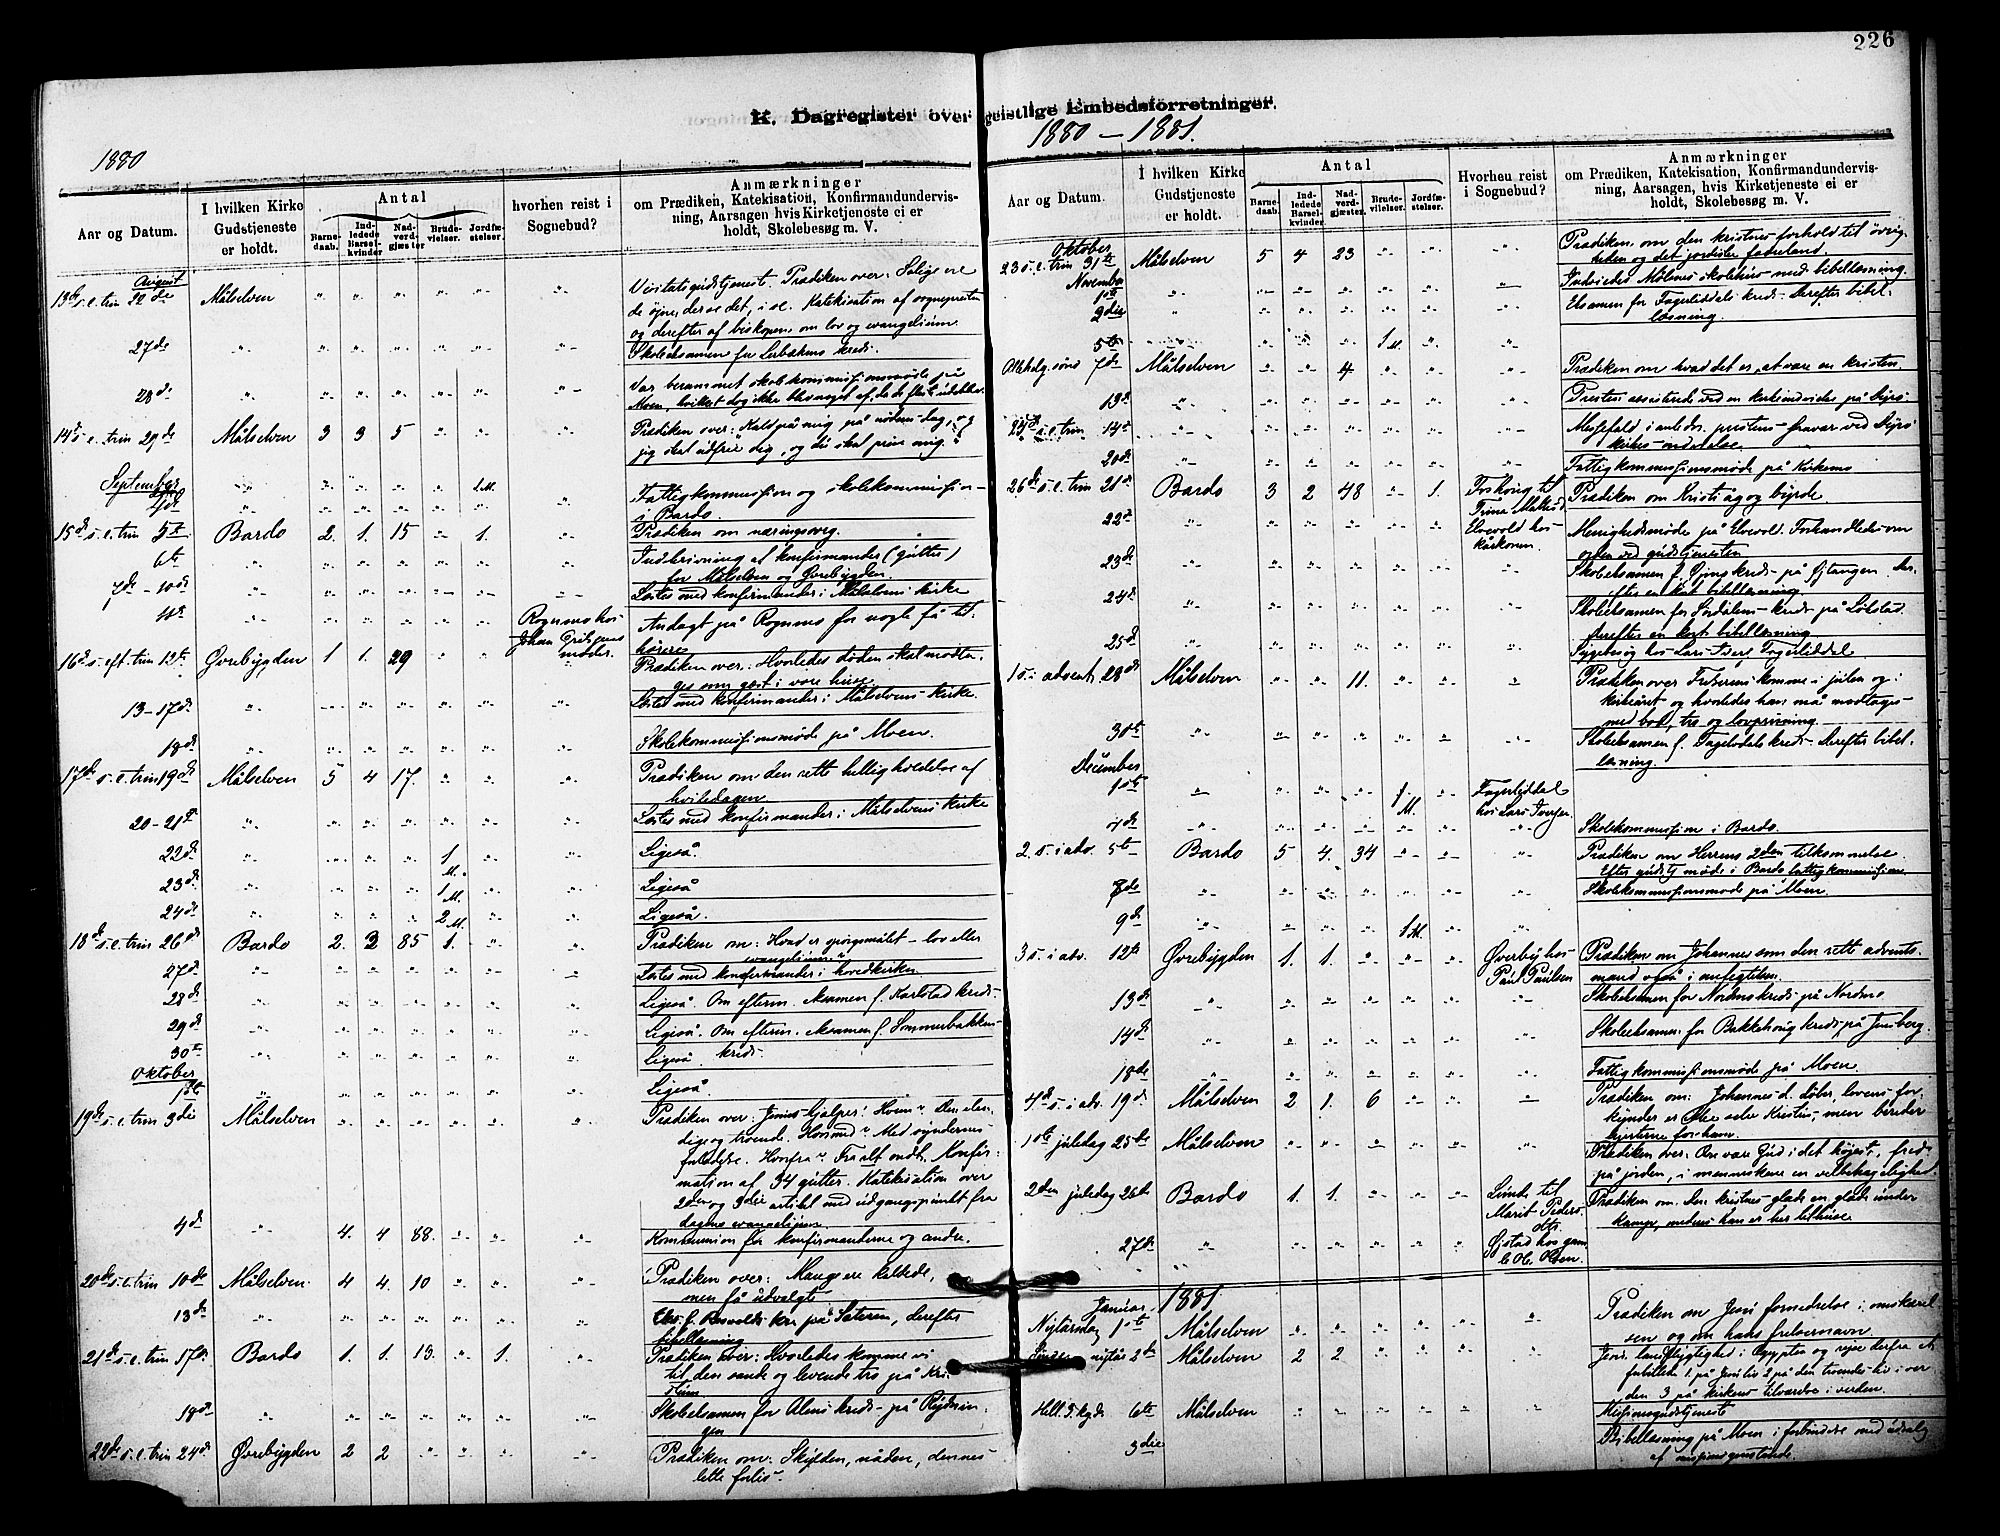 226
K. Dagregister over geistlige Embedsforretninger.
1880
1880 – 1881.
Aar og Datum.
I hvilken Kirke Gudstjeneste er holdt.
Antal
Barnedaab.
Indledede Barselkvinder
Nadverdgjæster
Brudevielser.
Jordfæstelser.
hvorhen reist i Sognebud?
Anmærkninger
om Prædiken, Katekisation, Konfirmandundervisning, Aarsagen hvis Kirketjeneste ei er holdt, Skolebesøg m. V.
August
13de s. e. trin 22de Målselven
Visitatsgudstjenest. Prædiken over: Salige ere
de øjne, der se det, i se. Katekisation af sognepresten
og derefter af biskopen om lov og evangelium.
27de
Skoleeksamen for kreds.
28de
Var berammet skolekommissionsmøde på
Moen, hvilket dog ikke blev noget af, da de fleste udeblev.
14de s. e. trin 29de Målselven 3 3 5
Prædiken over: Kald på mig på nødens dag, og
jeg skal udfri dig, og du skal prise mig.
September
1 M.
4de
Fattigkommission og skolekommission
i Bardo.
15de s. e. trin 5te Bardo 2. 1. 15 1.
Prædiken om næringssorg.
6te
Indskrivning af konfirmander (gutter)
for Målselven og Øvrebygden.
7de – 10de
Læstes med konfirmander i Målselvens kirke
11te
Rognmo hos
Johan
moder.
Andagt på Rognmo for nogle få til-
hørere
16de s. eft. trin 12te Øvrebygden 1 1. 29
Prædiken over: Hvorledes døden skal modta-
ges som gæst i vore huse.
13–17de
Læstes med konfirmander i Målselvens kirke.
18de
Skolekommissionsmøde på Moen.
17de s. e. trin 19de Målselven 5 4 17.
Prædiken om den rette helligholdelse af
hviledagen
20–21de
Læstes med konfirmander i Målselvens kirke
22de 1 M.
Ligeså.
23de 1 M.
Ligeså
24de 2 M.
Ligeså.
18de s. e. trin 26de Bardo 2. 3 85 1.
Prædiken om: Hvad er spørgsmålet – lov eller
evangelium?
27de
Læstes med konfirmander i hovedkirken
28de
Ligeså. Om efterm. eksamen f. Karlstad kreds.
29de
Ligeså. Om efterm. eksamen f. Sommerbakken
kreds
30te
Ligeså
Oktober
1ste
Ligeså
19de s. e. trin 3die Målselven
Prædiken over: Jesus hjælper! Hvem? Den elen-
dige og troende. Hvormed? Med syndernes
forladelse. Hvorfra? Fra alt ondt. Konfir-
mation af 34 gutter. Katekisation over
2den og 3die artikel med udgangspunkt fra
dagens evangelium.
4de 4. 4 88.
Kommunion for konfirmanderne og andre.
20de s. e. trin 10de Målselven 4 4. 10
Prædiken over: Mange ere kaldede,
men få udvalgte
13de
Eks. f. kr. på Sæteren, derefter
bibellæsning
21de s. e. trin 17de Bardo 1. 1. 13. 1.
Prædiken over: Hvorledes komme vi
til den sande og levende tro på Kri-
stum
18de
Skoleeksamen for kreds på
22de s. e. trin 24de Øvrebygden 2 2
Prædiken om: Skylden, nåden, dennes
Aar og Datum.
I hvilken Kirke Gudstjeneste er holdt.
Antal
Barnedaab.
Indledede Barselkvinder.
Nadverdgjæster.
Brudevielser.
Jordfæstelser.
Hvorhen reist i Sognebud?
Anmærkninger
om Prædiken, Katekisation, Konfirmandundervisning, Aarsagen, hvis Kirketjeneste ei er holdt, Skolebesøg m. V.
Oktober
23 s. e. trin 31te Målselven 5 4 23
Prædiken om den kristnes forhold til øvrig-
heden og det jordiske fædreland
November
1ste
Indviedes Målsnes skolehus med bibellæsning.
2den
Eksamen for Fagerliddals kreds. Derefter bibel-
læsning.
5te 1 M.
Allehelg. søns 7de Målselven 4
Prædiken om hvad det er, at være en kristen.
13de
Presten assisterede ved en kirkeindvielse på
s. e. trin 14de
Messefald i anledn. prestens fravær ved
kirkes indvielse
20de
Fattigkommissionsmøde på Kirkemo
26de s. e. trin 21de Bardo 3 2 48 1.
til
Trina
Prædiken om Kristi åg og byrde
22de
Elvevold hos
Menighedsmøde på Elvevold. Forhandledes om
orden ved gudstjenesten
23de
Skoleeksamen f. kreds på Der-
efter en kort bibellæsning
24de
Skoleeksamen for Sørdalens kreds på
derefter en kort bibellæsning
25de
Sygebesøg hos Lars Ivers. Fagerliddal.
1 s. i advent 28de Målselven 11.
Prædiken over Frelserens komme i julen og i
kirkeåret og hvorledes han må modtages
med bod, tro og lovprisning.
30te
Skoleeksamen f. kreds. Derefter bibel-
læsning.
December
1ste 1 M.
Fagerliddal
hos Lars Iversen
4de
Skolekommission i Bardo.
2. s. i adv. 5te Bardo 5 4. 34
Prædiken om Herrens 2den tilkommelse.
Efter gudstj. møde i Bardo fattigkommission
8de
Skolekommissionsmøde på Moen.
9de 1 M.
3 s. i adv. 12te Øvrebygden 1. 1.
Øverby hos
Paul Paulsen
Prædiken om Johannes som den rette advents-
mand også i anfegtelsen.
13de
Skoleeksamen for Nordmo kreds på Nordmo
14de
Skoleeksamen for Bakkehaug kreds på
18de
Fattigkommissionsmøde på Moen.
4de s. i adv. 19de Målselven 2 1. 6
Prædiken om: Johannes d. døber, lovens for-
kynder er ikke selv Kristus, men bereder
hjerterne for ham.
1ste juledag 25te Målselven
Prædiken over: Ære være Gud i det højeste, fred
på jorden, i menneskene en velbehagelighed.
2den juledag 26de Bardo 1. 1.
til
Marit Peders-
dtr.
Prædiken om: Den kristnes glæde en glæde under
kampe, endnu han er her tilhuse
27de
hos gam-
le Ole Olsen.
1881
Januar
Nytårsdag 1ste Målselven
Prædiken om Jesu fornedrelse i omskærel-
sen og om hans frelsernavn.
Søndag nytår 2den Målselven 2 2
Jesu landflygtighed i Ægypten og rejse derfra et
forbillede 1 på Jesu liv 2 på den troendes liv i ver-
den 3 på kirkens tilværelse i verden.
Hell. 3. kgd. 6te Målselven
Missionsgudstjeneste
3die
Bibellæsning på Moen i forbindelse med udsalg
af missionsgenstande.